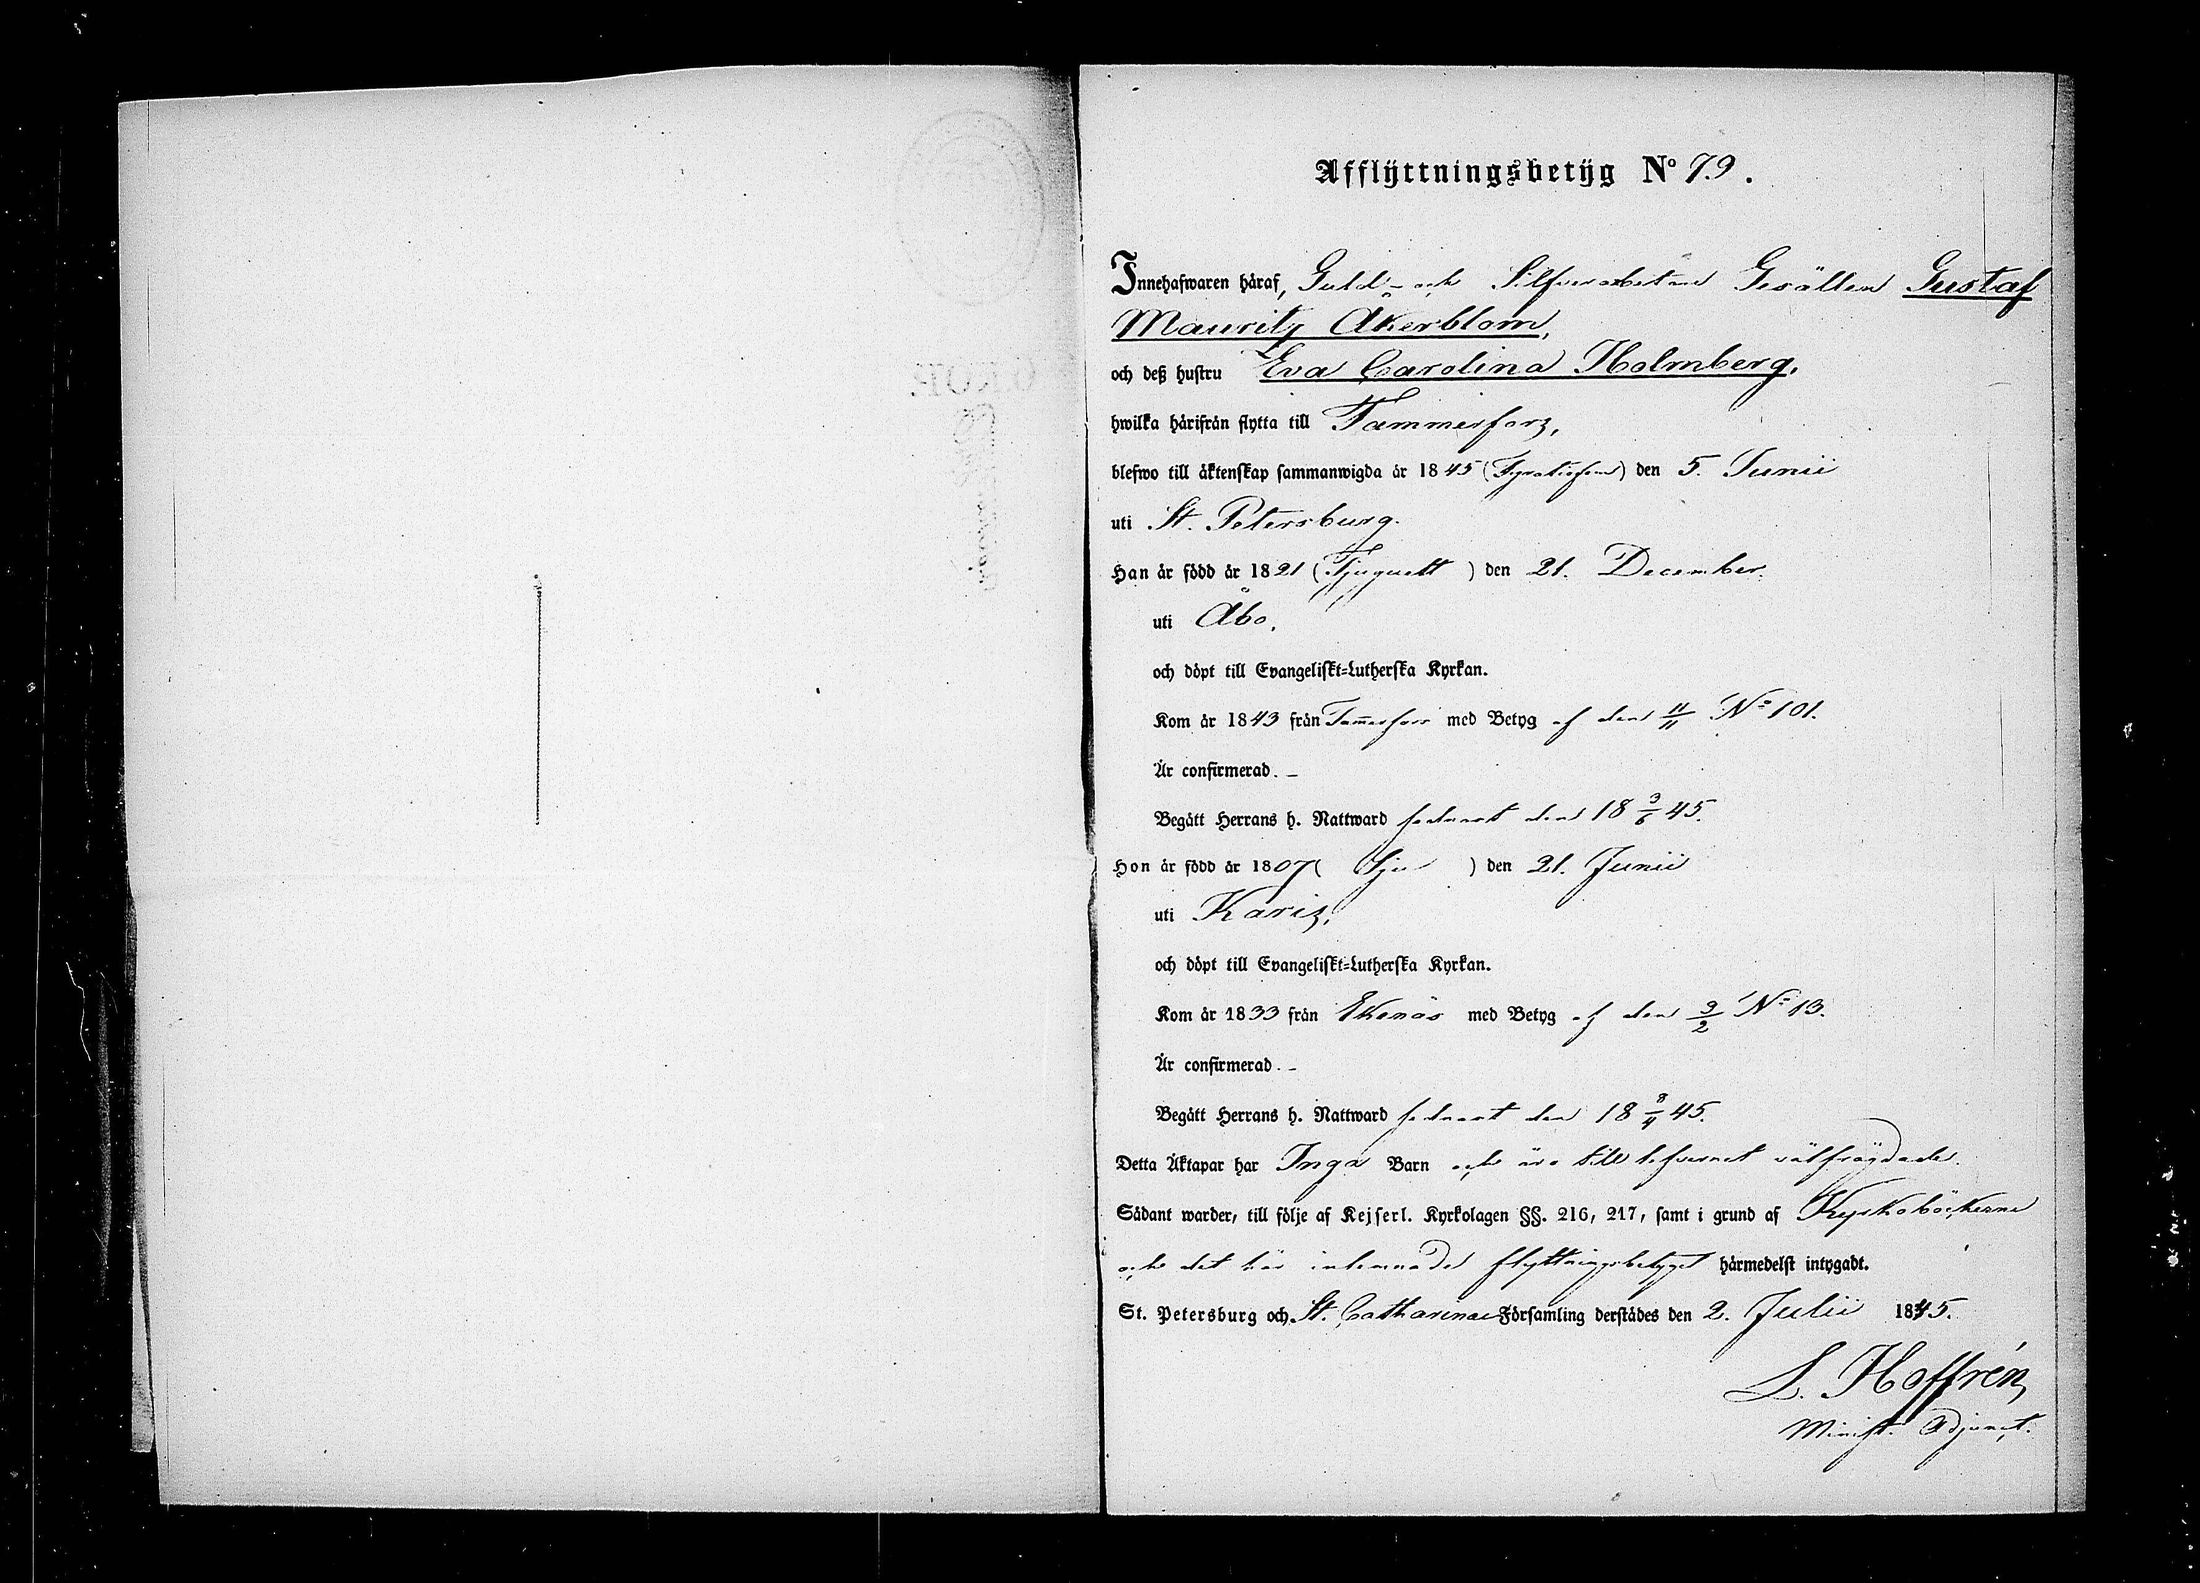 Afflÿttningsbetÿg No 79.
Innehafwaren håraf, Guld- och Silfverarbetare Gesällen Gustaf
Mauritz Åkerblom,
och deß hustru Eva Carolina Holmberg,
hwilka hårifrån flytta till Tammerfors,
blefwo till åktenskap sammanwigda år 1845 (Fyratiofem) den 5. Junii
uti St. Petersburg.
Han år född år 1821 (Tjuguett) den 21. December.
uti Åbo,
och döpt till Evangeliskt-Lutherska Kyrkan.
Kom år 1843 från Tam̄erfors med Betyg af den 11/11 No 101.
År confirmerad. –
Begått Herrans h. Nattward sednast den 18 3/6 45.
Hon år född år 1807 (Sju) den 21. Junii
uti Karis,
och döpt till Evangeliskt-Lutherska Kyrkan.
Kom år 1833 från Ekenäs med Betyg af den 9/2 No 13.
År confirmerad. –
Begått Herrans h. Nattward sednast den 18 8/4 45.
Detta Åktapar har Inga Barn och äro till lefvernet välfrägdade.
Sådant warder, till följe af Kejserl. Kyrkolagen §§. 216, 217, samt i grund af Kyrkoböckerne
och det här inlemnade flyttningsbetyget hårmedelst intygadt.
St. Petersburg och St. Catharinae Församling derstådes den 2. Julii 1845.
L. Hoffrén,
Minist. Adjunct.